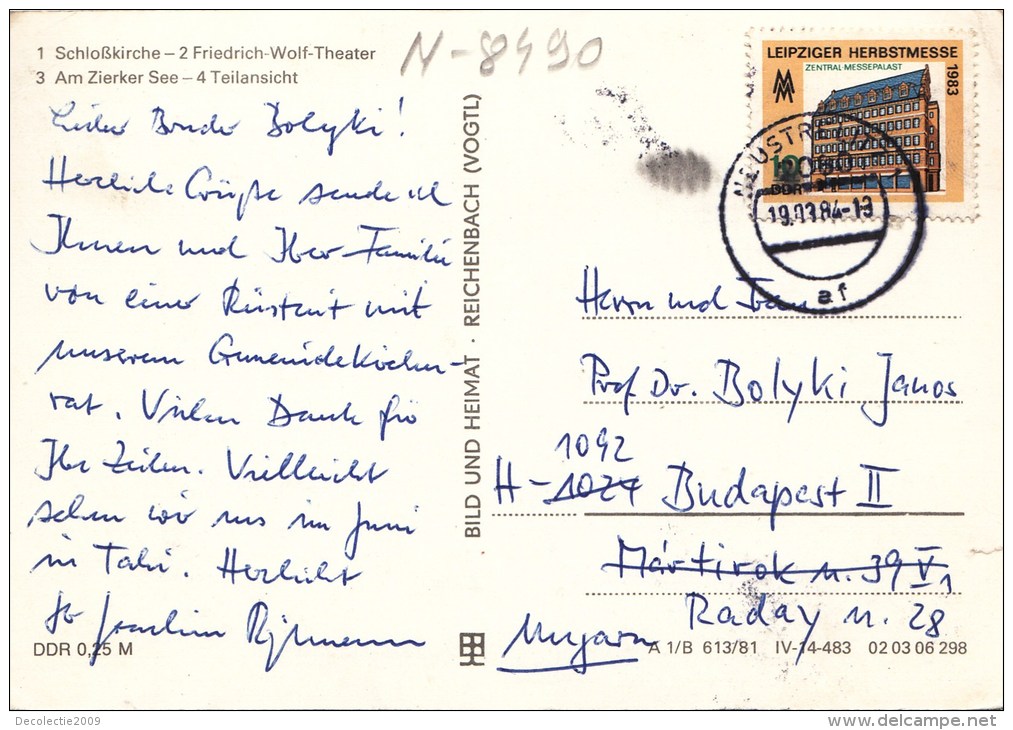 1 Schloßkirche – 2 Friedrich-Wolf-Theater
3 Am Zierker See – 4 Teilansicht
N-8490
Lieber Bruder Bolyki!
Herzliche Grüße sende ich
Ihnen und Ihrer Familie
von einer Rüstzeit mit
unserem Gemeindekirchen-
rat. Vielen Dank für
Ihre Zeilen. Vielleicht
sehen wir uns im Juni
in Tahi. Herzlichst
Ihr Joachim
DDR 0,25 M
BILD UND HEIMAT · REICHENBACH (VOGTL)
LEIPZIGER HERBSTMESSE
ZENTRAL-MESSEPALAST
1983
MM
10
NEUSTRELITZ
2080
19.03.84-13
af
Herrn und Frau
Prof. Dr. Bolyki Janos
1092
H-1027 Budapest II
Mártirok u. 39 V,1
Raday u. 28
Ungarn
A 1/B 613/81 IV-14-483 02 03 06 298
Decolectie2009
www.delcampe.net